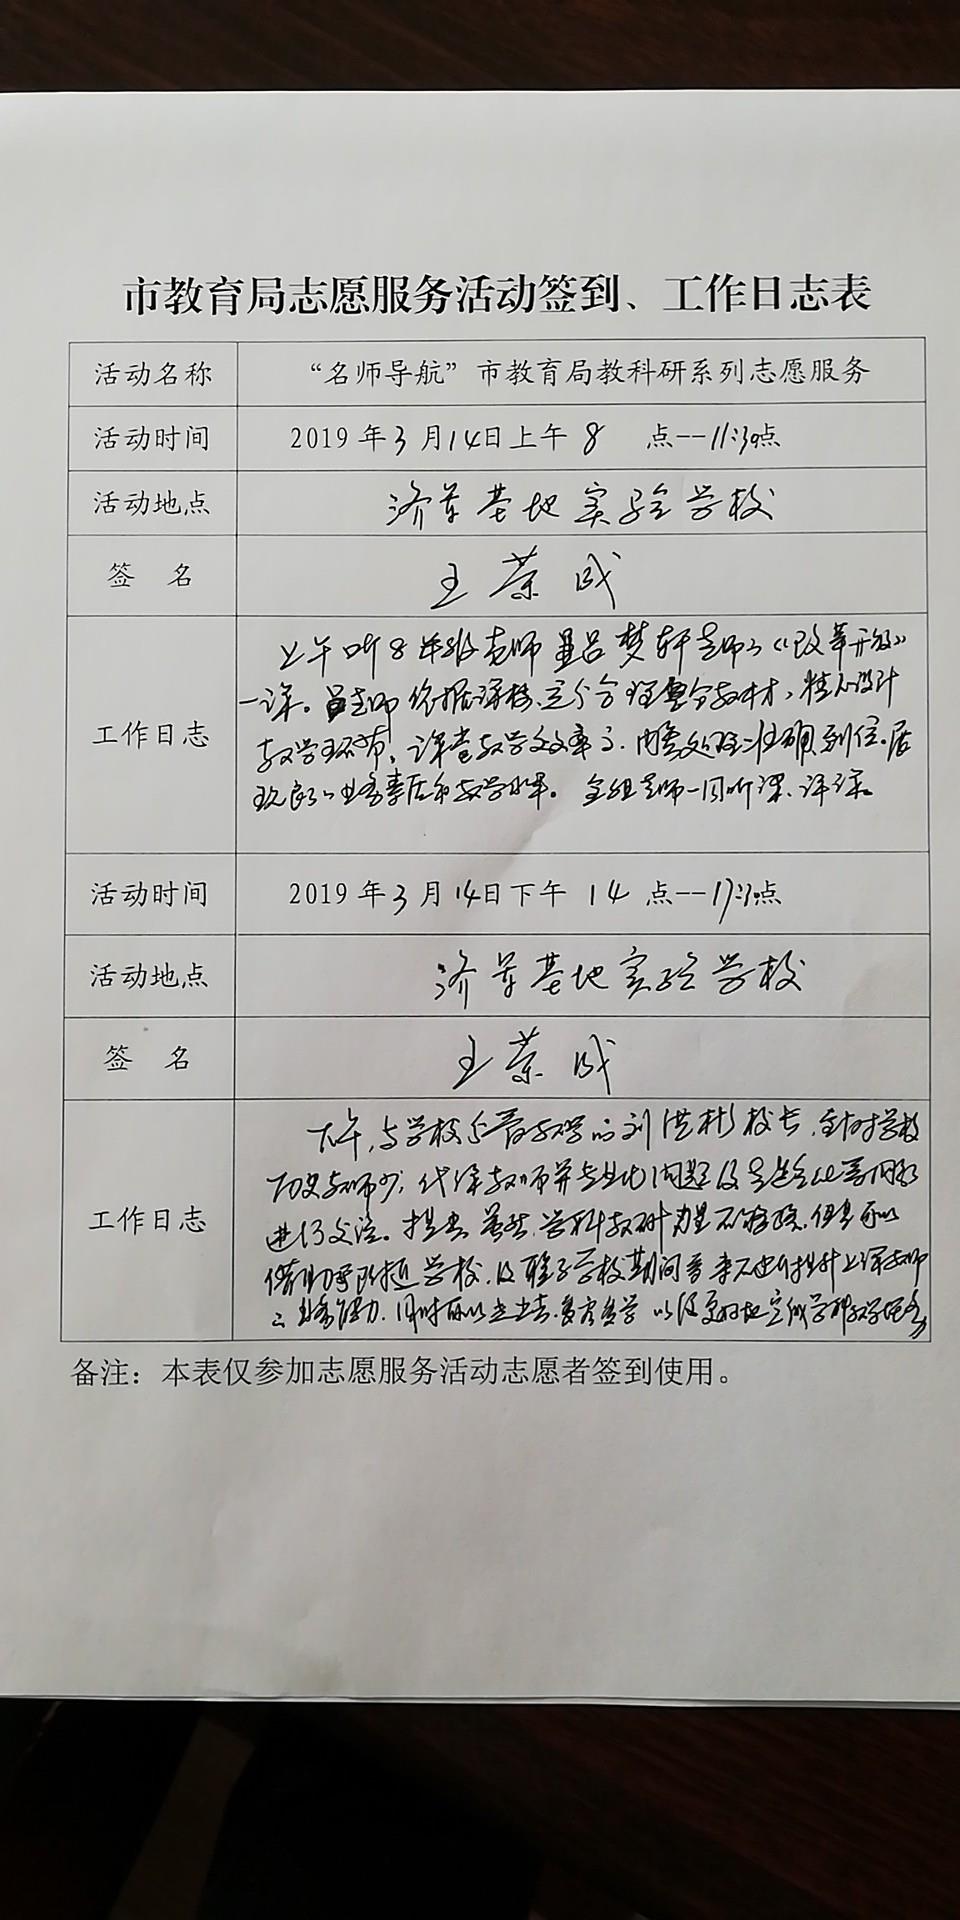 市教育局志愿服务活动签到、工作日志表
活动名称 “名师导航”市教育局教科研系列志愿服务
活动时间 2019年3月14日上午 8 点--11:30点
活动地点 济军基地实验学校
签 名 王荣成
工作日志
上午听8年级老师 吕梦轩老师的《改革开放》
一课。吕老师依据课标,充分合理整合教材,精心设计
教学环节,课堂教学效率高,内容处理准确到位。展
现良好的业务素质和教学水平。全组老师一同听课、评课。
活动时间 2019年3月14日下午 14 点--17:30点
活动地点 济军基地实验学校
签 名 王荣成
工作日志
下午,与学校分管教学的刘洪彬校长,针对学校
历史教师少,代课教师非专业化问题及
进行交流。提出虽然学科教研力量不
借助 学校,及 学校期间 提升上课教师
的业务能力,同时可以走出去,多 学 以便更好地完成学科教学任务
备注：本表仅参加志愿服务活动志愿者签到使用。